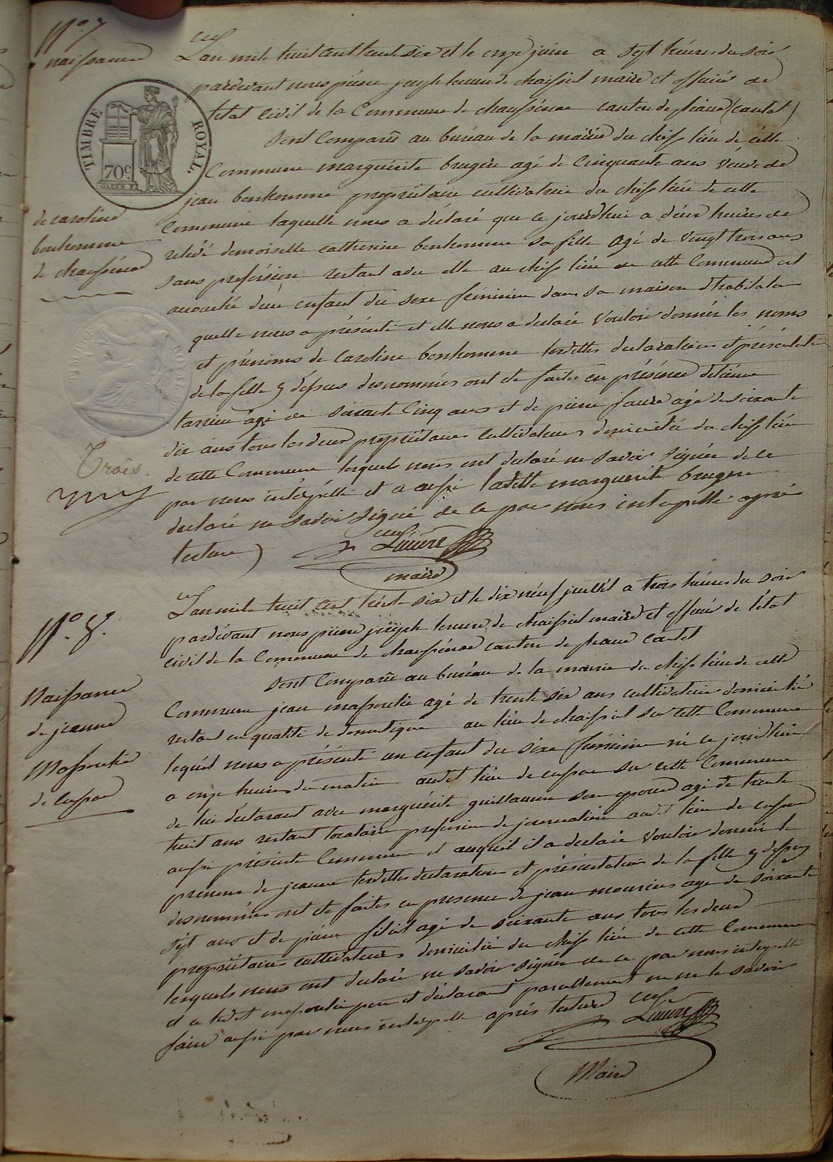 N.o 7
naissance
L'an mil huit cent trente six et le onze juin a sept heures du soir
pardevant nous pierre joseph lemere de chaissiel maire et officier de
letat civil de la Commune de chaussenac canton de pleaux (cantal)
TIMBRE ROYAL
70c
Sont Comparüe au buréau de la mairie du cheif lieu de cette
Commune marguérite brugere agé de Cinquante ans veuve de
jean bonhomme propriétaire cultivatrice du cheif lieu de cette
de caroline
Commune laquelle nous a déclaré que ce jourdhui a deux heures de
bonhomme
relévé demoiselle catherine bonhomme sa fille agé de vingt trois ans
de chaussénac
sans profession restant avec elle au cheif lieu de cette Commune est
accouchée d'un enfant du sexe féminin dans sa maison d'habitation
quelle nous a présenté et elle nous a declaré vouloir donner les noms
et prénoms de Caroline bonhomme lesdittes declaration et présentation
de la fille y dessus denommée ont eté faites en présence detienne
agé de soixante Cinq ans et de pierre faure agé de soixante
Trois.
dix ans tous les deux propriétaires cultivateurs domicilié du cheif lieu
de cette Commune lesquels nous ont déclaré ne savoir signer de ce
par nous intérpéllé et a aussi laditte marguerite brugere
declaré ne savoir signer de ce par nous intérpéllé aprés
lecture)
maire
N.o 8.
L'an mil huit cent trente six et le dix neuf juillét a trois heures du soir
pardévant nous pierre joseph lemere de chaissiel maire et officier de l'état
civil de la Commune de chaussénac canton de pleaux cantal
Sont Comparüe au buréau de la mairie du cheif lieu de cette
Naissance
Commune jean massoulie agé de trente six ans cultivateur domicilié
de jeanne
restant en qualité de doméstique au lieu de chaissiel sur cette Commune
Massoulie
lequel nous a présenté un enfant du sexe féminin né ce jourdhui
de
a onze heures du matin audit lieu de sur cette Commune
de lui declarant avec marguérite guillaume son epouse agé de trente
huit ans restant locataire profession de journaliere audit lieu de
aussi presente Commune et auquel il a declaré vouloir donner le
prenom de jeanne lesdittes declaration et présentation de la fille y dessus
denommée ont eté faites en presence de jean agé de soixante
sept ans et de pierre agé de soixante ans tous les deux
propriétaires cultivateurs domicilié du cheif lieu de cette Commune
lesquels nous ont declaré ne savoir signer de ce par nous intérpéllé
et a ledit massoulie pere et déclarant pareillement ne le savoir
faire aussi par nous intérpéllé aprés lecture
Maire